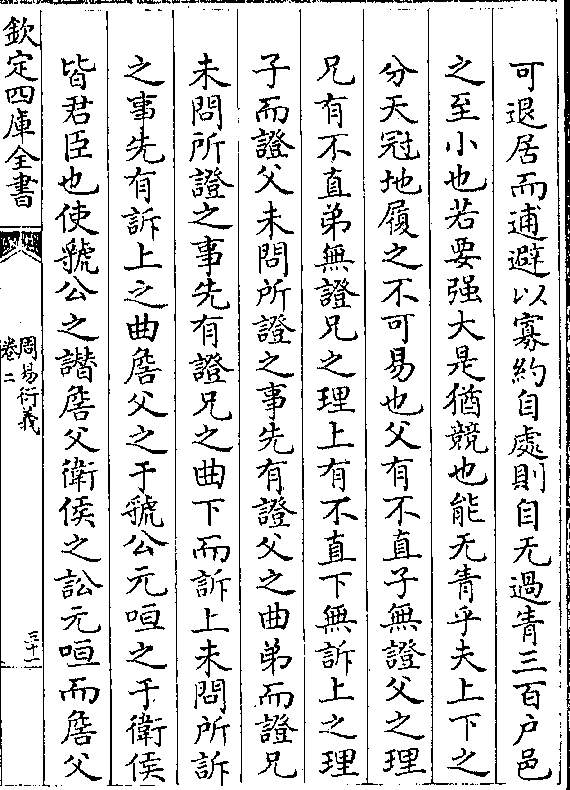 可退居而逋避以寡約自處則自无過眚三百户邑
之至小也若要强大是猶競也能无眚乎夫上下之
分天冠地履之不可易也父有不直子無證父之理
兄有不直弟無證兄之理上有不直下無訴上之理
子而證父未問所證之事先有證父之曲弟而證兄
未問所證之事先有證兄之曲下而訴上未問所訴
之事先有訴上之曲詹父之于虢公元咺之于衛侯
皆君臣也使虢公之譖詹父衛侯之訟元咺而詹父
欽定四庫全書
周易衍義
卷二
三十一